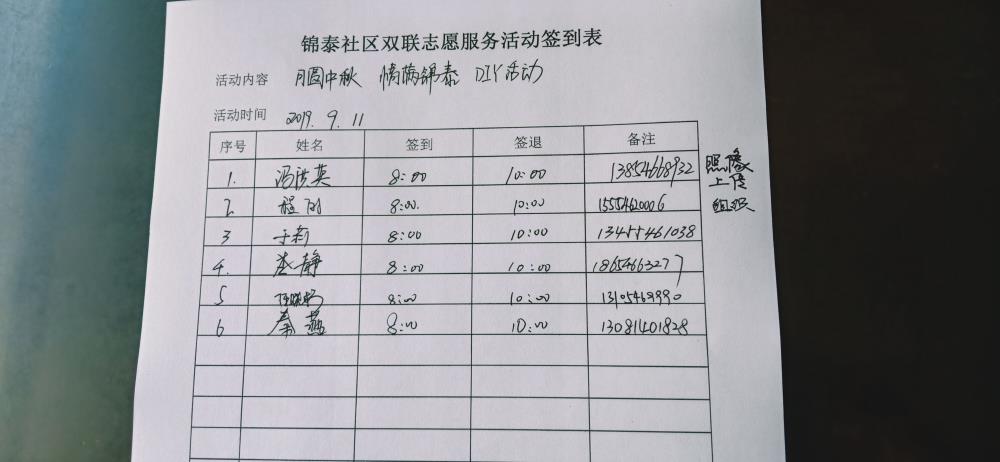 锦泰社区双联志愿服务活动签到表
活动内容 月圆中秋 情满锦泰 DIY活动
活动时间 2019. 9. 11
序号 姓名 签到 签退 备注
1. 冯洪英 8:00 10:00 13854668932 照像
上传
2 程刚 8:00. 10:00 15554620006 组织
3 于新 8:00 10:00 13455461038
4. 静 8:00 10:00 18654663277
5 8:00 10:00
6 秦燕 8:00 10:00 13081401828